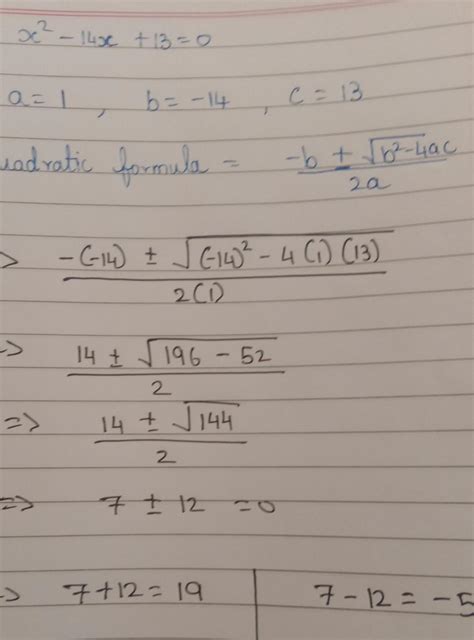 x² - 14x + 13 = 0
a = 1 , b = -14 , c = 13
uadratic formula = -b ± √b²-4ac / 2a
> -(-14) ± √(-14)² - 4(1)(13) / 2(1)
=> 14 ± √196 - 52 / 2
=> 14 ± √144 / 2
=> 7 ± 12 = 0
-> 7 + 12 = 19 | 7 - 12 = -5